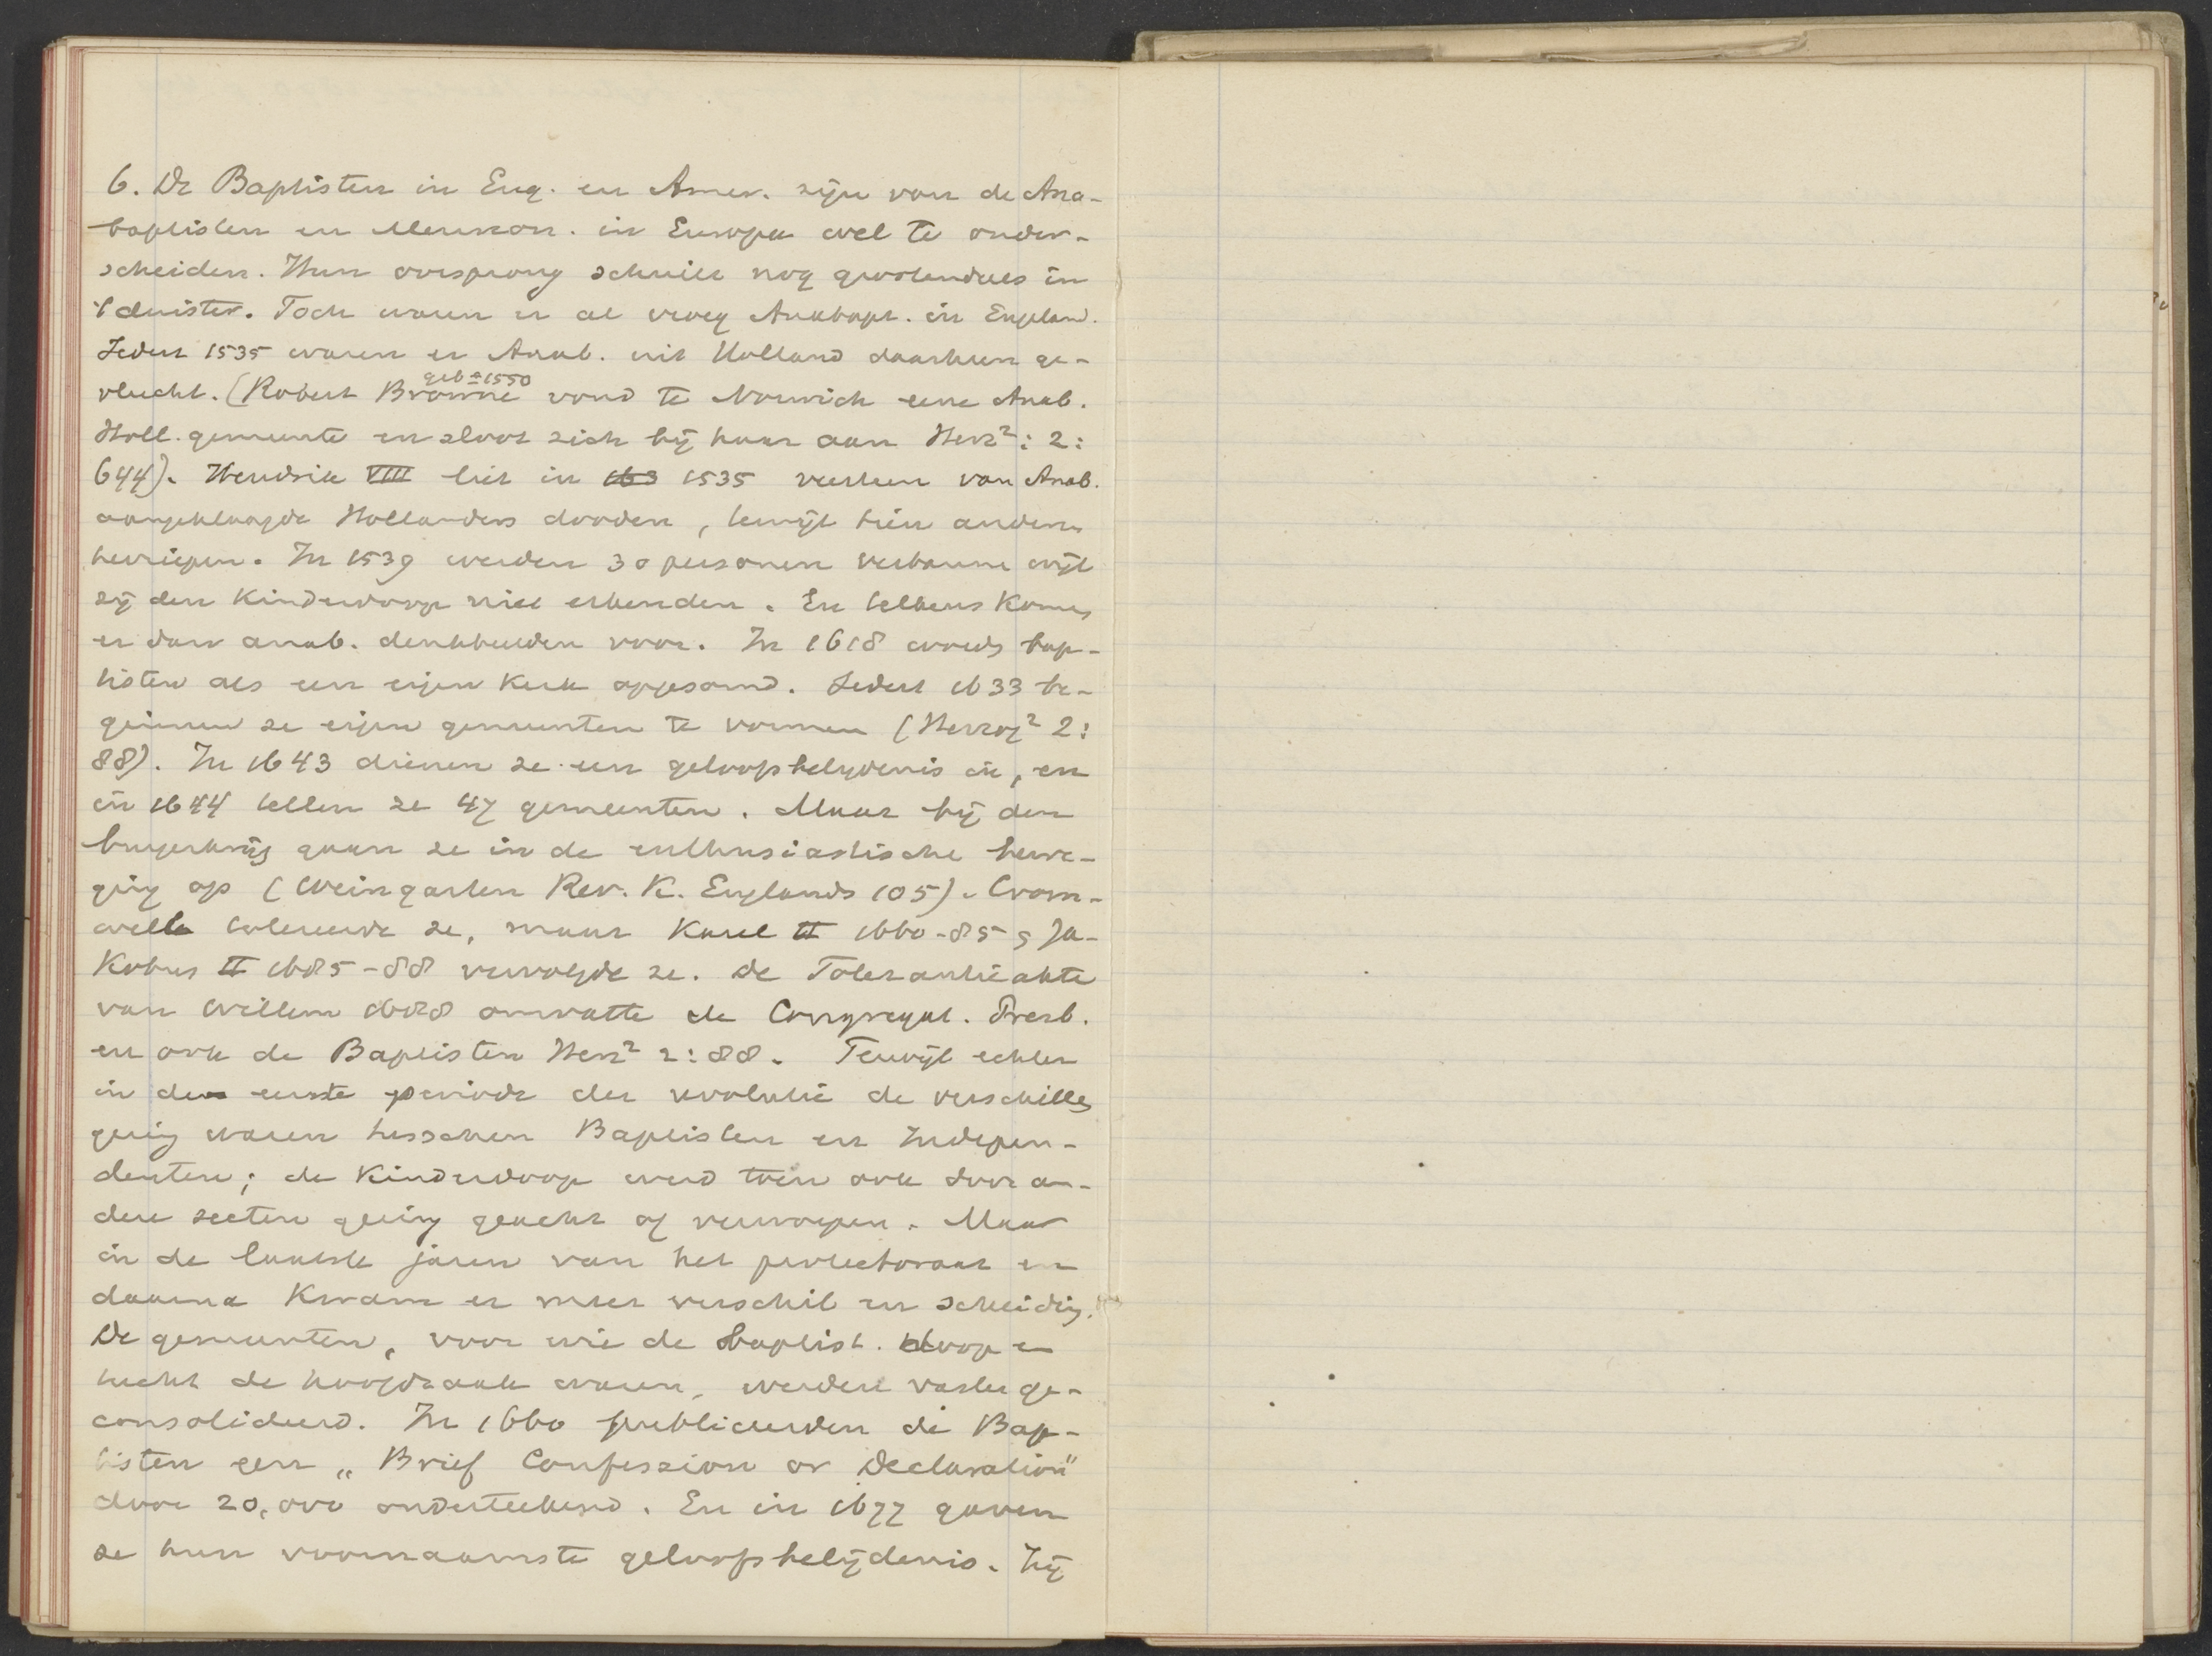 6. De Baptisten in Eng. en Amer. zijn van de Ana-
baptisten en Mennon. in Europa wel te onder-
scheiden. Hun oorsprong schuilt nog grootendeels in
't duister. Toch waren er al vroeg Anabapt. in Engeland.
Sedert 1535 waren er Anab. uit Holland daarheen ge-
geb ± 1550
vlucht. (Robert Browne vond te Norwich eene Anab.
Holl. gemeente en sloot zich bij haar aan Herz²: 2:
644). Hendrik VIII liet in 163 1535 veertien van Anab.
aangeklaagde Hollanders dooden, terwijl tien anderen
herriepen. In 1539 werden 30 personen verbannen wijl
zij den Kinderdoop niet erkenden. En telkens komen
er dan anab. denkbeelden voor. In 1618 worden bap-
tisten als een eigen Kerk opgesomd. Sedert 1633 be-
ginnen ze eigen gemeenten te vormen (Herzog² 2:
88). In 1643 dienen ze een geloofsbelydenis in, en
in 1644 tellen ze 47 gemeenten. Maar bij den
burgerkrijg gaan ze in de enthusiastische bewe-
ging op (Weingarten Rev. K. Englands 105). Crom-
well tolereerde ze, maar Karel II 1660-85 en Ja-
Kobus II 1685-88 vervolgde ze. De Tolerantieakte
van Willem 1688 omvatte de Congregat. Presb.
en ook de Baptisten Herz² 2:88. Terwijl echter
in de eerste periode der revolutie de verschillen
gering waren tusschen Baptisten en Indepen-
denten; de Kinderdoop werd toen ook door an-
dere secten gering geacht of verworpen. Maar
in de laatste jaren van het protectoraat en
daarna Kwam er meer verschil en scheiding.
De gemeenten, voor wie de baptist. doop en
tucht de hoofdzaak waren, werden vaster ge-
consolideerd. In 1660 publiceerden de Bap-
tisten een „Brief Confession or Declaration"
door 20,000 onderteekend. En in 1677 gaven
ze hun voornaamste geloofsbelijdenis. Zij